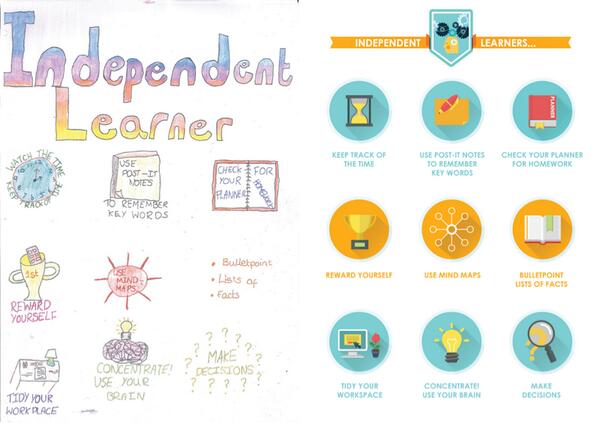 Independent
Learner
WATCH THE TIME
KEEP TRACK OF TIME
USE
POST-IT
NOTES
TO REMEMBER
KEY WORDS
CHECK
YOUR
PLANNER
FOR
HOMEWORK
1st
REWARD
YOURSELF
USE
MIND-
MAPS
• Bulletpoint
• Lists of
• Facts
TIDY YOUR
WORKPLACE
CONCENTRATE!
USE YOUR
BRAIN
? ? ? ? ?
MAKE
DECISIONS
? ? ? ? ?
INDEPENDENT LEARNERS...
KEEP TRACK OF
THE TIME
USE POST-IT NOTES
TO REMEMBER
KEY WORDS
PLANNER
CHECK YOUR PLANNER
FOR HOMEWORK
REWARD YOURSELF
USE MIND MAPS
BULLETPOINT
LISTS OF FACTS
TIDY YOUR
WORKSPACE
CONCENTRATE!
USE YOUR BRAIN
MAKE
DECISIONS